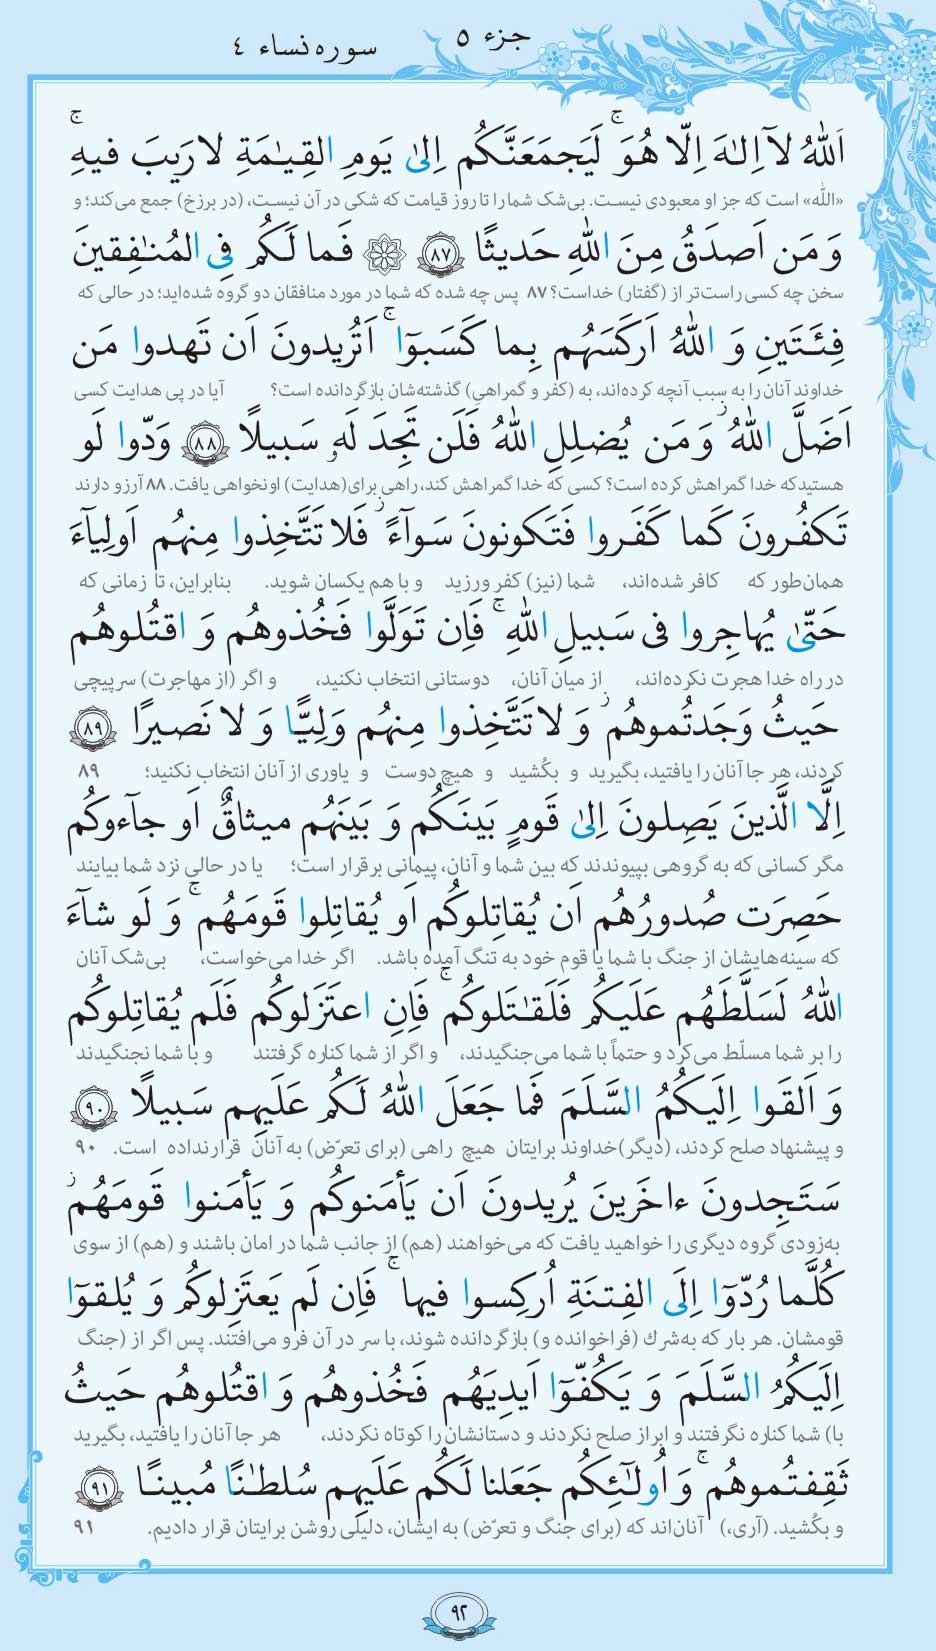 جزء ۵
سوره نساء ۴
اَللّٰهُ لآ اِلٰهَ اِلّا هُوَ ۚ لَيَجمَعَنَّكُم اِلىٰ يَومِ القِيـٰمَةِ لا رَيبَ فيهِ ۚ
«اللّٰه» است که جز او معبودی نیست. بی‌شک شما را تا روز قیامت که شکی در آن نیست، (در برزخ) جمع می‌کند؛ و
وَ مَن اَصدَقُ مِنَ اللّٰهِ حَديثًا ﴿۸۷﴾ ۞ فَما لَكُم فِى المُنـٰفِقينَ
سخن چه کسی راست‌تر از (گفتار) خداست؟ ۸۷ پس چه شده که شما در مورد منافقان دو گروه شده‌اید؛ در حالی که
فِئَتَينِ وَ اللّٰهُ اَركَسَهُم بِما كَسَبوٓا ۚ اَتُريدونَ اَن تَهدوا مَن
خداوند آنان را به سبب آنچه کرده‌اند، به (کفر و گمراهیِ) گذشته‌شان بازگردانده است؟ آیا در پی هدایت کسی
اَضَلَّ اللّٰهُ ۖ وَ مَن يُضلِلِ اللّٰهُ فَلَن تَجِدَ لَهٗ سَبيلًا ﴿۸۸﴾ وَدّوا لَو
هستیدکه خدا گمراهش کرده است؟ کسی که خدا گمراهش کند، راهی برای(هدایت) اونخواهی یافت. ۸۸ آرزو دارند
تَكفُرونَ كَما كَفَروا فَتَكونونَ سَوآءً ۖ فَلا تَتَّخِذوا مِنهُم اَولِيآءَ
همان‌طور که کافر شده‌اند، شما (نیز) کفر ورزید و با هم یکسان شوید. بنابراین، تا زمانی که
حَتّىٰ يُهاجِروا فى سَبيلِ اللّٰهِ ۚ فَاِن تَوَلَّوا فَخُذوهُم وَ اقتُلوهُم
در راه خدا هجرت نکرده‌اند، از میان آنان، دوستانی انتخاب نکنید، و اگر (از مهاجرت) سرپیچی
حَيثُ وَجَدتُموهُم ۖ وَ لا تَتَّخِذوا مِنهُم وَلِيًّا وَ لا نَصيرًا ﴿۸۹﴾
کردند، هر جا آنان را یافتید، بگیرید و بکُشید و هیچ دوست و یاوری از آنان انتخاب نکنید؛ ۸۹
اِلَّا الَّذينَ يَصِلونَ اِلىٰ قَومٍ بَينَكُم وَ بَينَهُم ميثاقٌ اَو جآءوكُم
مگر کسانی که به گروهی بپیوندند که بین شما و آنان، پیمانی برقرار است؛ یا در حالی نزد شما بیایند
حَصِرَت صُدورُهُم اَن يُقاتِلوكُم اَو يُقاتِلوا قَومَهُم ۚ وَ لَو شآءَ
که سینه‌هایشان از جنگ با شما یا قوم خود به تنگ آمده باشد. اگر خدا می‌خواست، بی‌شک آنان
اللّٰهُ لَسَلَّطَهُم عَلَيكُم فَلَقـٰتَلوكُم ۚ فَاِنِ اعتَزَلوكُم فَلَم يُقاتِلوكُم
را بر شما مسلّط می‌کرد و حتماً با شما می‌جنگیدند، و اگر از شما کناره گرفتند و با شما نجنگیدند
وَ اَلقَوا اِلَيكُمُ السَّلَمَ فَما جَعَلَ اللّٰهُ لَكُم عَلَيهِم سَبيلًا ﴿۹۰﴾
و پیشنهاد صلح کردند، (دیگر)خداوند برایتان هیچ راهی (برای تعرّض) به آنان قرارنداده است. ۹۰
سَتَجِدونَ ءاخَرينَ يُريدونَ اَن يَأمَنوكُم وَ يَأمَنوا قَومَهُم ۖ
به‌زودی گروه دیگری را خواهید یافت که می‌خواهند (هم) از جانب شما در امان باشند و (هم) از سوی
كُلَّما رُدّوٓا اِلَى الفِتنَةِ اُركِسوا فيها ۚ فَاِن لَم يَعتَزِلوكُم وَ يُلقوٓا
قومشان. هر بار که به‌شرك (فراخوانده و) بازگردانده شوند، با سر در آن فرو می‌افتند. پس اگر از (جنگ
اِلَيكُمُ السَّلَمَ وَ يَكُفّوٓا اَيدِيَهُم فَخُذوهُم وَ اقتُلوهُم حَيثُ
با) شما کناره نگرفتند و ابراز صلح نکردند و دستانشان را کوتاه نکردند، هر جا آنان را یافتید، بگیرید
ثَقِفتُموهُم ۚ وَ اُولـٰٓئِكُم جَعَلنا لَكُم عَلَيهِم سُلطـٰنًا مُبينًا ﴿۹۱﴾
و بکُشید. (آری،) آنان‌اند که (برای جنگ و تعرّض) به ایشان، دلیلی روشن برایتان قرار دادیم. ۹۱
۹۲